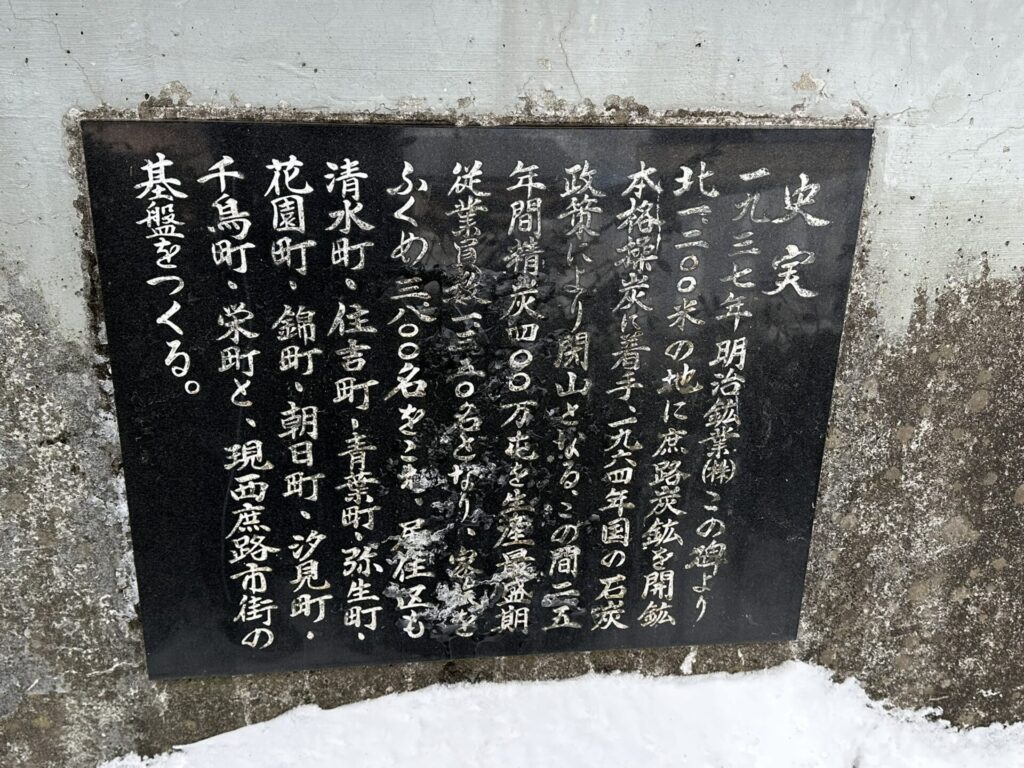 史実
一九三七年明治鉱業㈱この碑より
北一二〇〇米の地に庶路炭鉱を開鉱
本格操炭に着手、一九六四年国の石炭
政策により閉山となる、この間二五
年間精炭四〇〇万屯を生産最盛期
従業員数一三五〇名となり、家族を
ふくめ三八〇〇名をこえ、居住区も
清水町、住吉町、青葉町、弥生町、
花園町、錦町、朝日町、汐見町、
千鳥町、栄町と、現西庶路市街の
基盤をつくる。